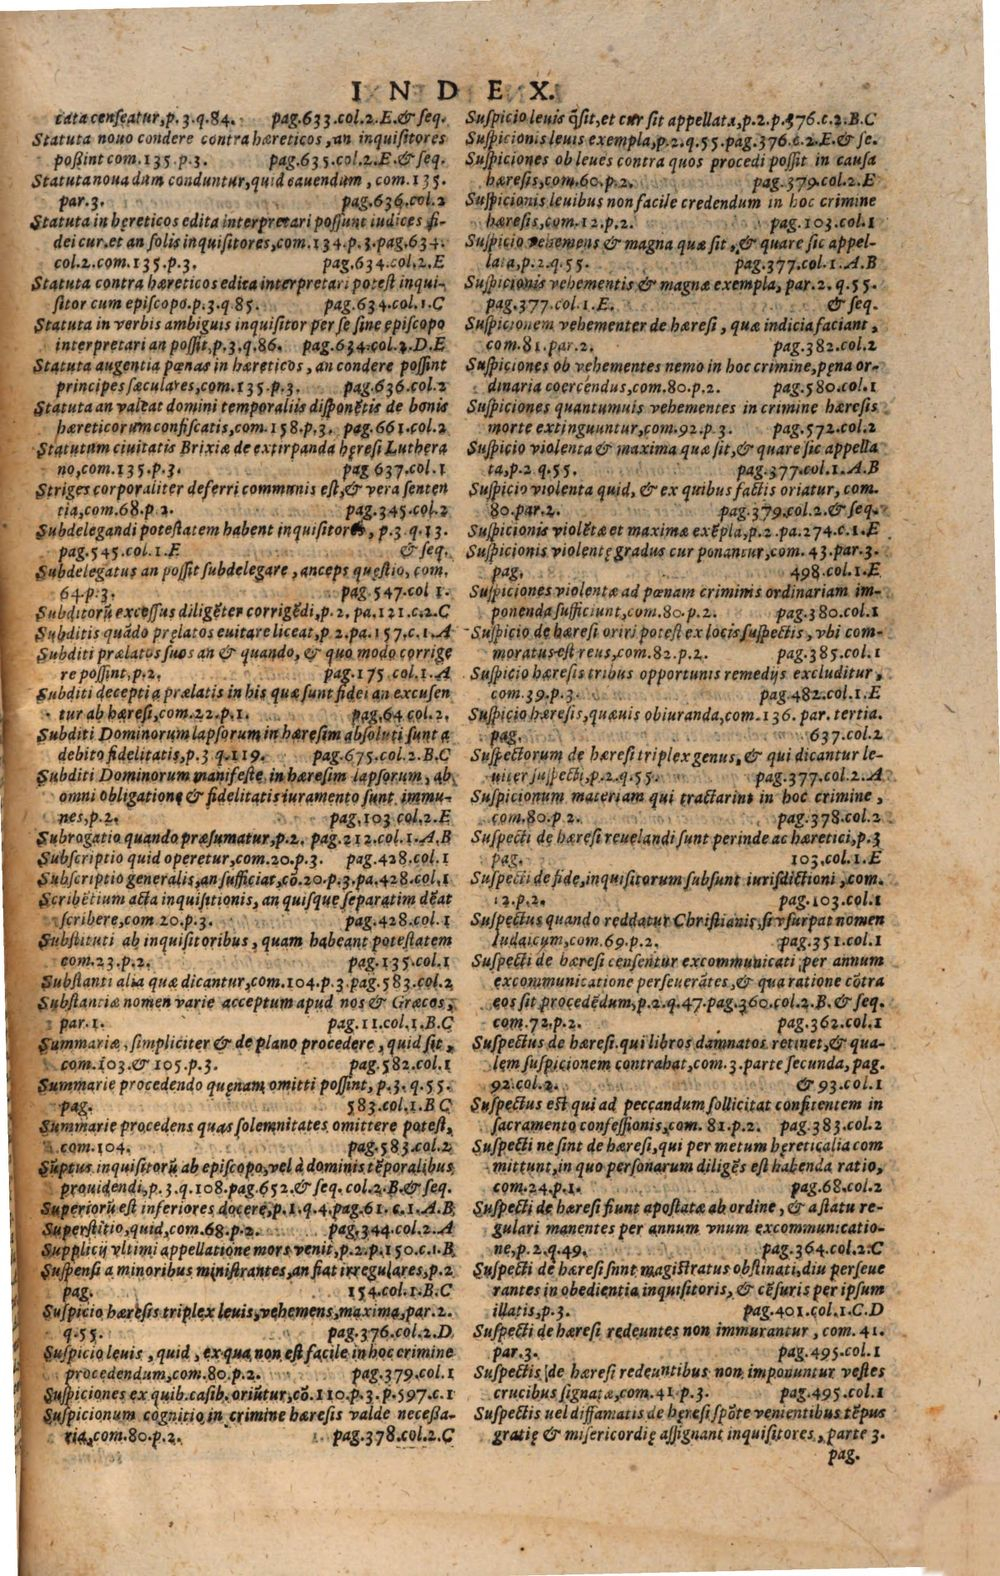 INDEX.
tata censeatur, p. 3. q. 84. pag. 633. col. 2. E. & seq.
Statuta nouo condere contra hæreticos, an inquisitores
possint com. 135. p. 3. pag. 635. col. 2. E. & seq.
Statuta noua dum conduntur, quid cauendum, com. 135.
par. 3. pag. 636. col. 2
Statuta in hęreticos edita interpretari possunt iudices fi-
dei cur, et an solis inquisitores, com. 134. p. 3. pag. 634.
col. 2. com. 135. p. 3. pag. 634. col. 2. E
Statuta contra hæreticos edita interpretari potest inqui-
sitor cum episcopo. p. 3. q. 85. pag. 634. col. 1. C
Statuta in verbis ambiguis inquisitor per se sine episcopo
interpretari an possit, p. 3. q. 86. pag. 634. col. 2. D. E
Statuta augentia pœnas in hæreticos, an condere possint
principes sæculares, com. 135. p. 3. pag. 636. col. 2
Statuta an valeat domini temporaliis disponẽtis de bonis
hæreticorum confiscatis, com. 158. p. 3. pag. 661. col. 2
Statutum ciuitatis Brixiæ de extirpanda hęresi Luthera
no, com. 135. p. 3. pag 637. col. 1
Striges corporaliter deferri communis est, & vera senten
tia, com. 68. p. 2. pag. 345. col. 2
Subdelegandi potestatem habent inquisitores, p. 3. q. 13.
pag. 545. col. 1. E & seq.
Subdelegatus an possit subdelegare, anceps quęstio, com.
64. p. 3. pag. 547. col 1.
Subditorũ excessus diligẽter corrigẽdi, p. 2. pa. 121. c. 2. C
Subditis quãdo pręlatos euitare liceat, p. 2. pa. 157. c. 1. A
Subditi prælatos suos an & quando, & quo modo corrige
re possint, p. 2. pag. 175 col. 1. A
Subditi decepti a prælatis in his quæ sunt fidei an excusen
tur ab hæresi, com. 22. p. 1. pag. 64 col. 2.
Subditi Dominorum lapsorum in hæresim absoluti sunt a
debito fidelitatis, p. 3 q. 119. pag. 675. col. 2. B. C
Subditi Dominorum manifeste in hæresim lapsorum, ab
omni obligatione & fidelitatis iuramento sunt immu-
nes, p. 2. pag. 103 col. 2. E
Subrogatio quando præsumatur, p. 2. pag. 212. col. 1. A. B
Subscriptio quid operetur, com. 20. p. 3. pag. 428. col. 1
Subscriptio generalis, an sufficiat, cõ. 20. p. 3. pa. 428. col. 1
Scribẽtium acta inquisitionis, an quisque separatim deẽat
scribere, com 20. p. 3. pag. 428. col. 1
Substituti ab inquisitoribus, quam habeant potestatem
com. 23. p. 2. pag. 135. col. 1
Substanti alia quæ dicantur, com. 104. p. 3. pag. 583. col. 2
Substantiæ nomen varie acceptum apud nos & Græcos,
par. 1. pag. 11. col. 1. B. C
Summariæ, simpliciter & de plano procedere, quid sit,
com. 103. & 105. p. 3. pag. 582. col. 1
Summarie procedendo quęnam omitti possint, p. 3. q. 55.
pag. 583. col. 1. B C
Summarie procedens quas solemnitates omittere potest,
com. 104. pag. 583. col. 2
Sũptus inquisitorũ ab episcopo, vel à dominis tẽporalibus
prouidendi, p. 3. q. 108. pag. 652. & seq. col. 2. B. & seq.
Superiorũ est inferiores docere, p. 1. q. 4. pag. 61. c. 1. A. B
Superstitio, quid, com. 68. p. 2. pag. 344. col. 2. A
Supplicij vltimi appellatione mors venit, p. 2. p. 150. c. 1. B
Suspensi a minoribus ministrantes, an fiat irregulares, p. 2
pag. 154. col. 1. B. C
Suspicio hæresis triplex leuis, vehemens, maxima, par. 2.
q. 55. pag. 376. col. 2. D
Suspicio leuis, quid, ex qua non est facile in hoc crimine
procedendum, com. 80. p. 2. pag. 379. col. 1
Suspiciones ex quib. casib. oriũtur, cõ. 110. p. 3. p. 597. c. 1
Suspicionum cognitio in crimine hæresis valde necessa-
ria, com. 80. p. 2. pag. 378. col. 2. C
Suspicio leuis q̃ sit, et cur sit appellata, p. 2. p. 376. c. 2. B. C
Suspicionis leuis exempla, p. 2. q. 55. pag. 376. c. 2. E. & se.
Suspiciones ob leues contra quos procedi possit in causa
hæresis, com. 60. p. 2. pag. 379. col. 2. E
Suspicionis leuibus non facile credendum in hoc crimine
hæresis, com. 12. p. 2. pag. 103. col. 1
Suspicio vehemens & magna quæ sit, & quare sic appel-
lata, p. 2. q. 55. pag. 377. col. 1. A. B
Suspicionis vehementis & magnæ exempla, par. 2. q. 55.
pag. 377. col. 1. E. & seq.
Suspicionem vehementer de hæresi, quæ indicia faciant,
com. 81. par. 2. pag. 382. col. 2
Suspiciones ob vehementes nemo in hoc crimine, pęna or-
dinaria coercendus, com. 80. p. 2. pag. 580. col. 1
Suspiciones quantumuis vehementes in crimine hæresis
morte extinguuntur, com. 92. p. 3. pag. 572. col. 2
Suspicio violenta & maxima quæ sit, & quare sic appella
ta, p. 2 q. 55. pag. 377. col. 1. A. B
Suspicio violenta quid, & ex quibus factis oriatur, com.
80. par. 2. pag. 379. col. 2. & seq.
Suspicionis violẽtæ et maximæ exẽpla, p. 2. pa. 274. c. 1. E
Suspicionis violentę gradus cur ponantur, com. 43. par. 3.
pag. 498. col. 1. E
Suspiciones violentæ ad pœnam criminis ordinariam im-
ponenda sufficiunt, com. 80. p. 2. pag. 380. col. 1
Suspicio de hæresi oriri potest ex locis suspectis, vbi com-
moratus est reus, com. 82. p. 2. pag. 385. col. 1
Suspicio hæresis tribus opportunis remedijs excluditur,
com. 39. p. 3. pag. 482. col. 1. E
Suspicio hæresis, quæuis obiuranda, com. 136. par. tertia.
pag. 637. col. 2
Suspectorum de hæresi triplex genus, & qui dicantur le-
uiter suspecti, p. 2. q. 55. pag. 377. col. 2. A
Suspicionum materiam qui tractarint in hoc crimine,
com. 80. p. 2. pag. 378. col. 2
Suspecti de hæresi reuelandi sunt perinde ac hæretici, p. 3
pag. 103. col. 1. E
Suspecti de fide, inquisitorum subsunt iurisdictioni, com.
12. p. 2. pag. 103. col. 1
Suspectus quando reddatur Christianis, si vsurpat nomen
Iudaicum, com. 69. p. 2. pag. 351. col. 1
Suspecti de hæresi censentur excommunicati, per annum
excommunicatione perseuerãtes, & qua ratione cõtra
eos sit procedẽdum, p. 2. q. 47. pag. 360. col. 2. B. & seq.
com. 72. p. 2. pag. 362. col. 1
Suspectus de hæresi. qui libros damnatos retinet, & qua-
lem suspicionem contrahat, com. 3. parte secunda, pag.
92. col. 2. & 93. col. 1
Suspectus est qui ad peccandum sollicitat confitentem in
sacramento confessionis, com. 81. p. 2. pag. 383. col. 2
Suspecti ne sint de hæresi, qui per metum hęreticalia com
mittunt, in quo personarum diligẽs est habenda ratio,
com. 24. p. 1. pag. 68. col. 2
Suspecti de hæresi fiunt apostatæ ab ordine, & a statu re-
gulari manentes per annum vnum excommunicatio-
ne, p. 2. q. 49. pag. 364. col. 2. C
Suspecti de hæresi sunt magistratus obstinati, diu perseue
rantes in obedientia inquisitoris, & cẽsuris per ipsum
illatis, p. 3. pag. 401. col. 1. C. D
Suspecti de hæresi redeuntes non immurantur, com. 41.
par. 3. pag. 495. col. 1
Suspectis de hæresi redeuntibus non imponuntur vestes
crucibus signatæ, com. 41. p. 3. pag. 495. col. 1
Suspectis uel diffamatis de hęresi spõte venientibus tẽpus
gratię & misericordię assignant inquisitores, parte 3.
pag.